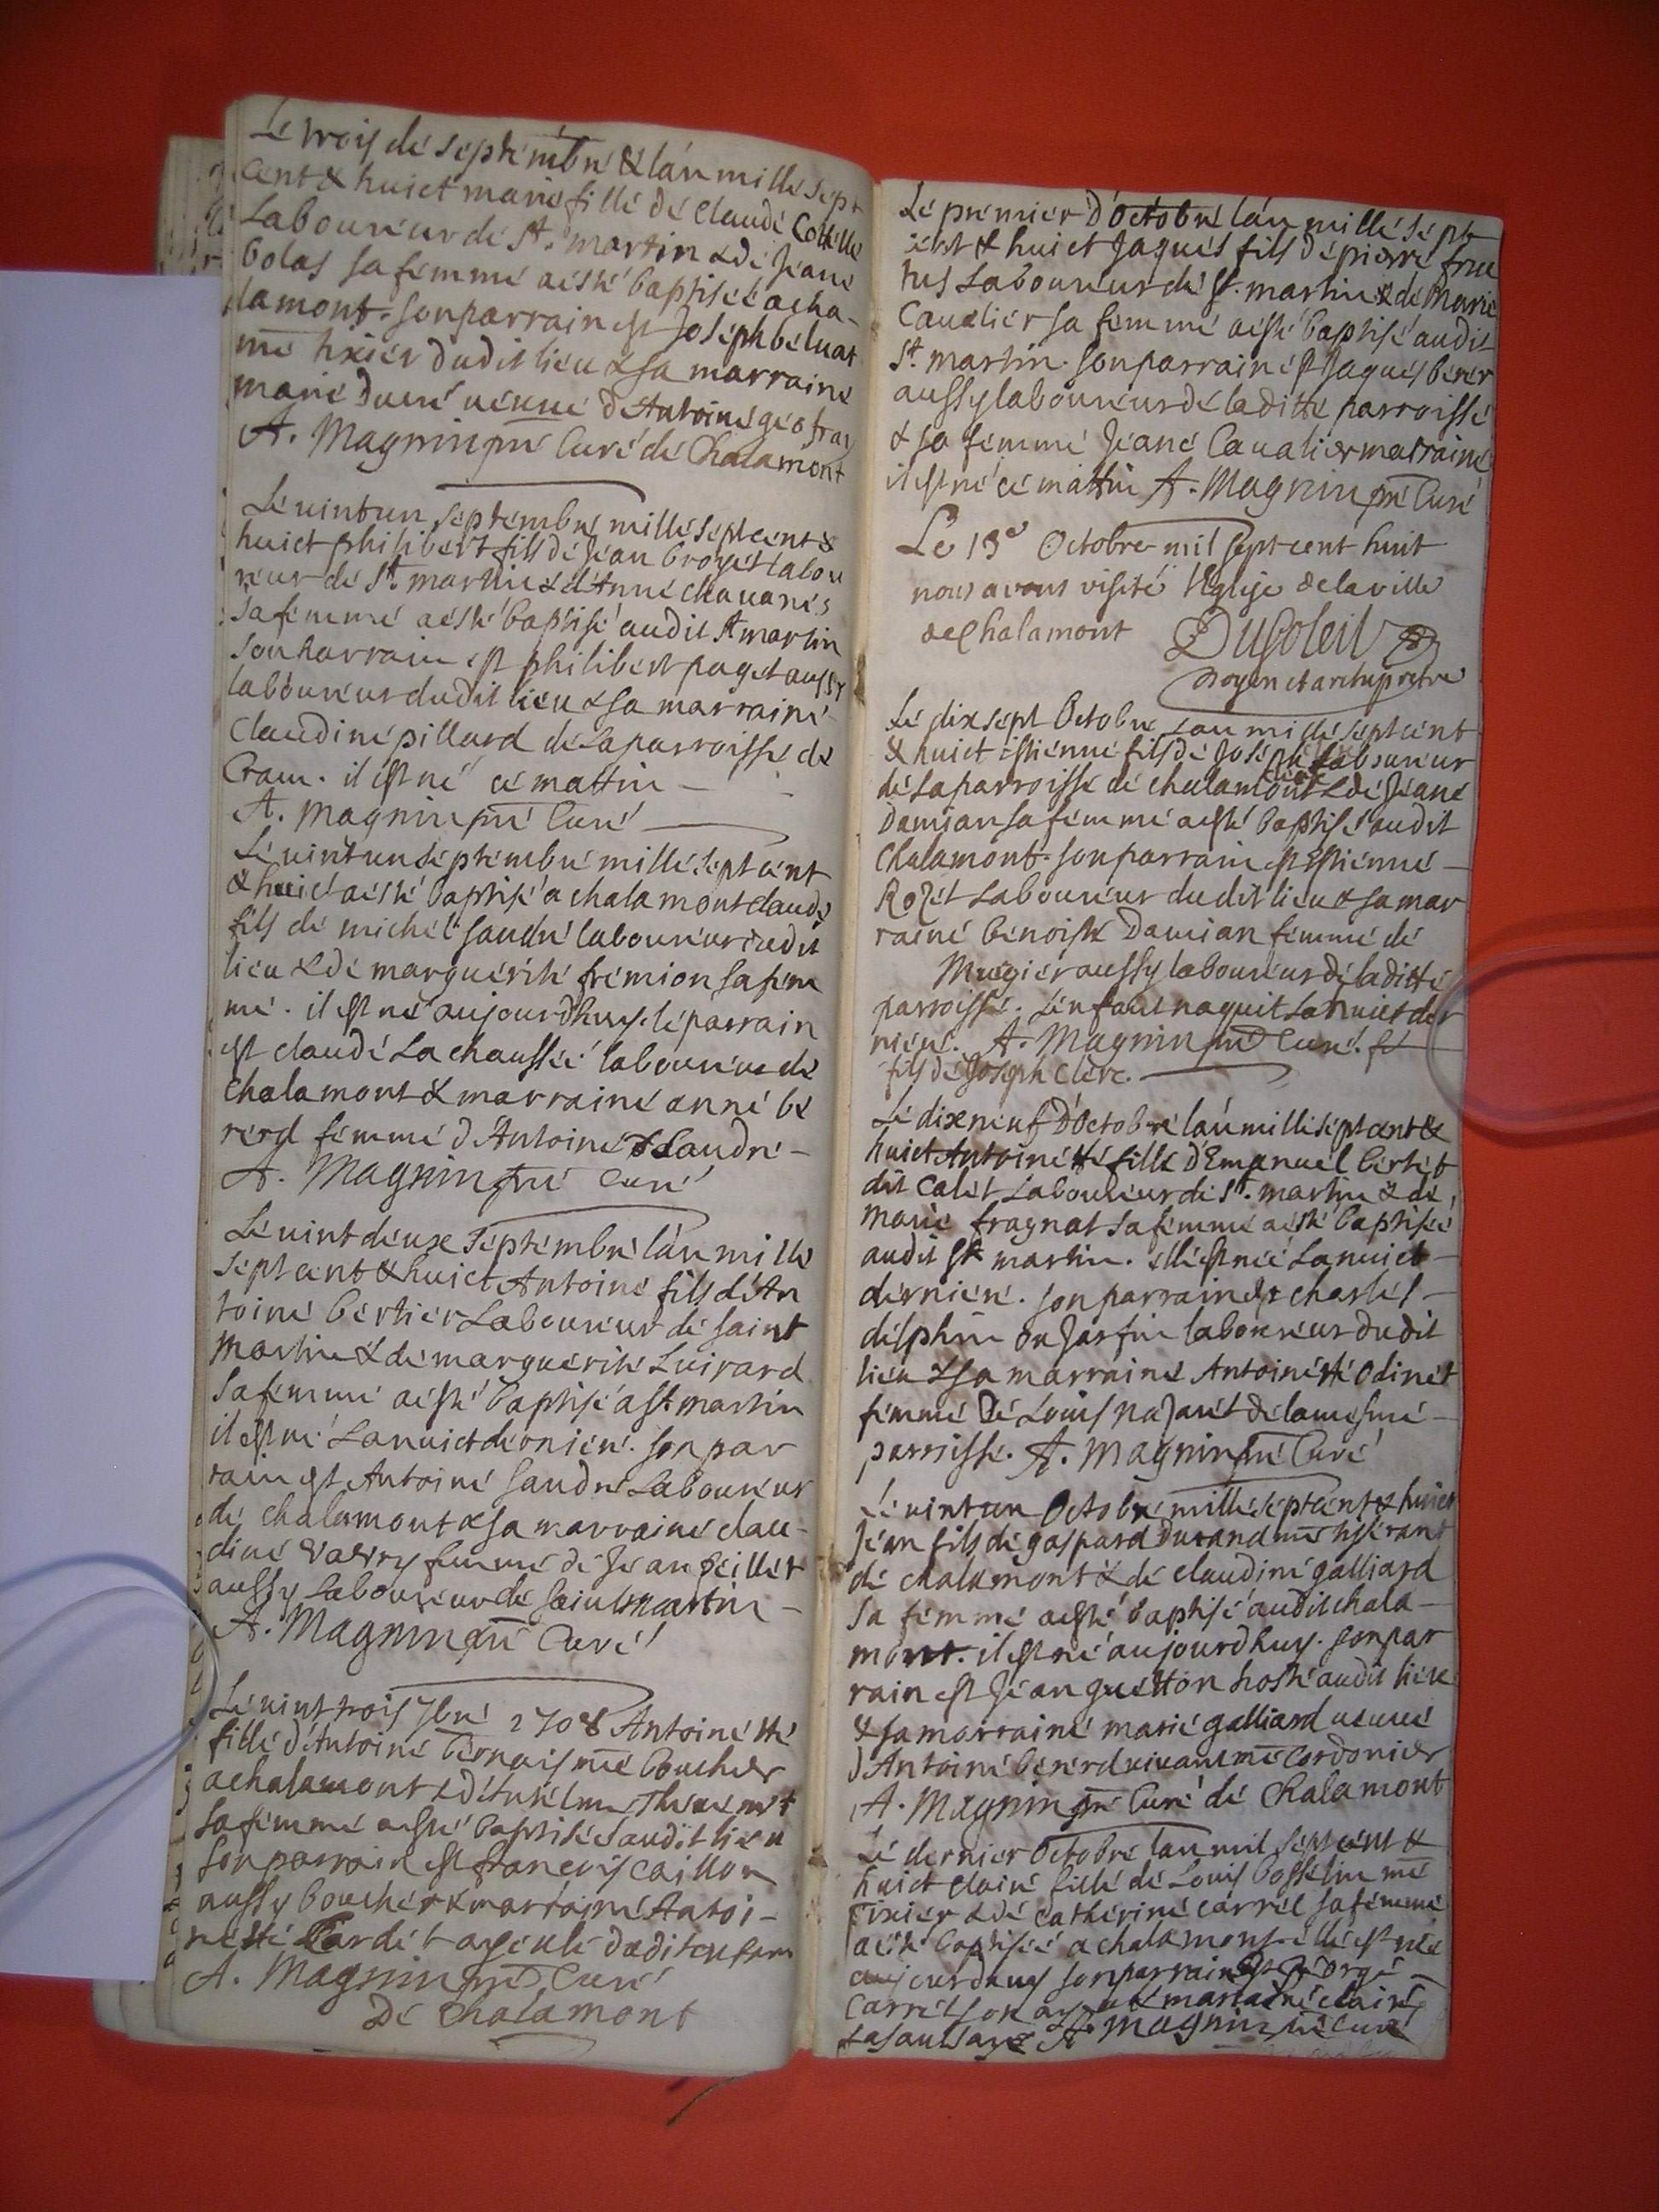 Le trois de septembre & l'an mille sept
cent & huict marie fille de Claude Cottelle
Laboureur de St. martin & de Jeane
bolas sa femme a esté baptisée a cha-
lamont. son parrain est Joseph beluat
me tixier dudit lieu & sa marraine
marie veuve d'Antoine geofray
A. Magnin pre Curé de Chalamont
Le vintun septembre mille sept cent &
huict philibert fils de Jean broyet labou
reur de St. martin & d'Anne chavanes
sa femme a esté baptisé audit St martin
son parrain est philibert paget aussy
laboureur dudit lieu & sa marraine
Claudine pillard de la parroisse de
Cran. il est né ce mattin
A. Magnin pre Curé
Le vintun septembre mille sept cent
& huict a esté baptisé a chalamont claude
fils de michel sandre laboureur dudit
lieu & de marguerite fremion sa fem
me. il est né aujourdhuy. le parrain
est claude La chaussée laboureur de
chalamont & marraine anne be
rerd femme d'Antoine Sandre
A. Magnin pre Curé
Le vint deuxe septembre l'an mille
sept cent & huict Antoine fils d'An
toine bertier Laboureur de saint
Martin & de marguerite Luirard
sa femme a esté baptisé a St martin
il est né La nuict derniere. son par
rain est Antoine sandre Laboureur
de chalamont & sa marraine clau-
dine valry femme de Jean peillet
aussy Laboureur de saint martin
A. Magnin pre Curé
Le vint trois 7bre 1708 Antoinette
fille d'Antoine bernais me boucher
a chalamont &
sa femme a esté baptisée audit lieu
son parrain est francois caillon
aussy boucher & marraine Antoi-
nette Lardet ayeule dudit enfan
A. Magnin pre Curé
De Chalamont
Le premier d'Octobre l'an mille sept
cent & huict Jaques fils de pierre frue
tus Laboureur de St. martin & de Marie
Cavalier sa femme a esté baptisé audit
St. martin. son parrain est Jaques berer
aussy laboureur de laditte parroisse
& sa femme Jeane Cavalier marraine
il est né ce mattin A. Magnin pre Curé
Le 13e Octobre mil sept cent huit
nous avons visité l'Eglise de la ville
de Chalamont Dusoleil
Doyen et archipretre
Le dixsept Octobre l'an mille sept cent
& huict estienne fils de Joseph clerc Laboureur
de La parroisse de chalamont & de Jeane
Damian sa femme a esté baptisé audit
Chalamont. son parrain est Estienne
Rozet Laboureur dudit lieu & sa mar
raine benoiste Damian femme de
Mugier aussy laboureur de laditte
parroisse. L'enfant naquit La nuict der
niere. A. Magnin pre Curé.
fils de Joseph Clerc.
Le dixeneuf D'Octobre l'an mille sept cent &
huict Antoinette fille d'Emanuel bertet
dit Calet Laboureur de St. martin & de
Marie fragnat sa femme a esté baptisée
audit St martin. elle est née La nuict
derniere. son parrain est charles
delphin ou Jarfin laboureur dudit
lieu & sa marraine Antoinette Odinet
femme de Louis nazaret de la mesme
parroisse. A. Magnin pre Curé
Le vintun Octobre mille sept cent & huict
Jean fils de gaspard Durand me tisserant
de chalamont & de claudine galliard
sa femme a esté baptisé audit chala-
mont. il est né aujourdhuy. son par
rain est Jean guetton hoste audit lieu
& sa marraine marie galliard veuve
d'Antoine bererd vivant me Cordonier
A. Magnin pre Curé de Chalamont
Le dernier Octobre l'an mil sept cent &
huict claire fille de Louis bosselin me
Tixier & de Catherine carrel sa femme
a esté baptisée a chalamont elle est née
aujourdhuy son parrain est George
Carrel son ayeul & marraine claire
A. Magnin pre Curé